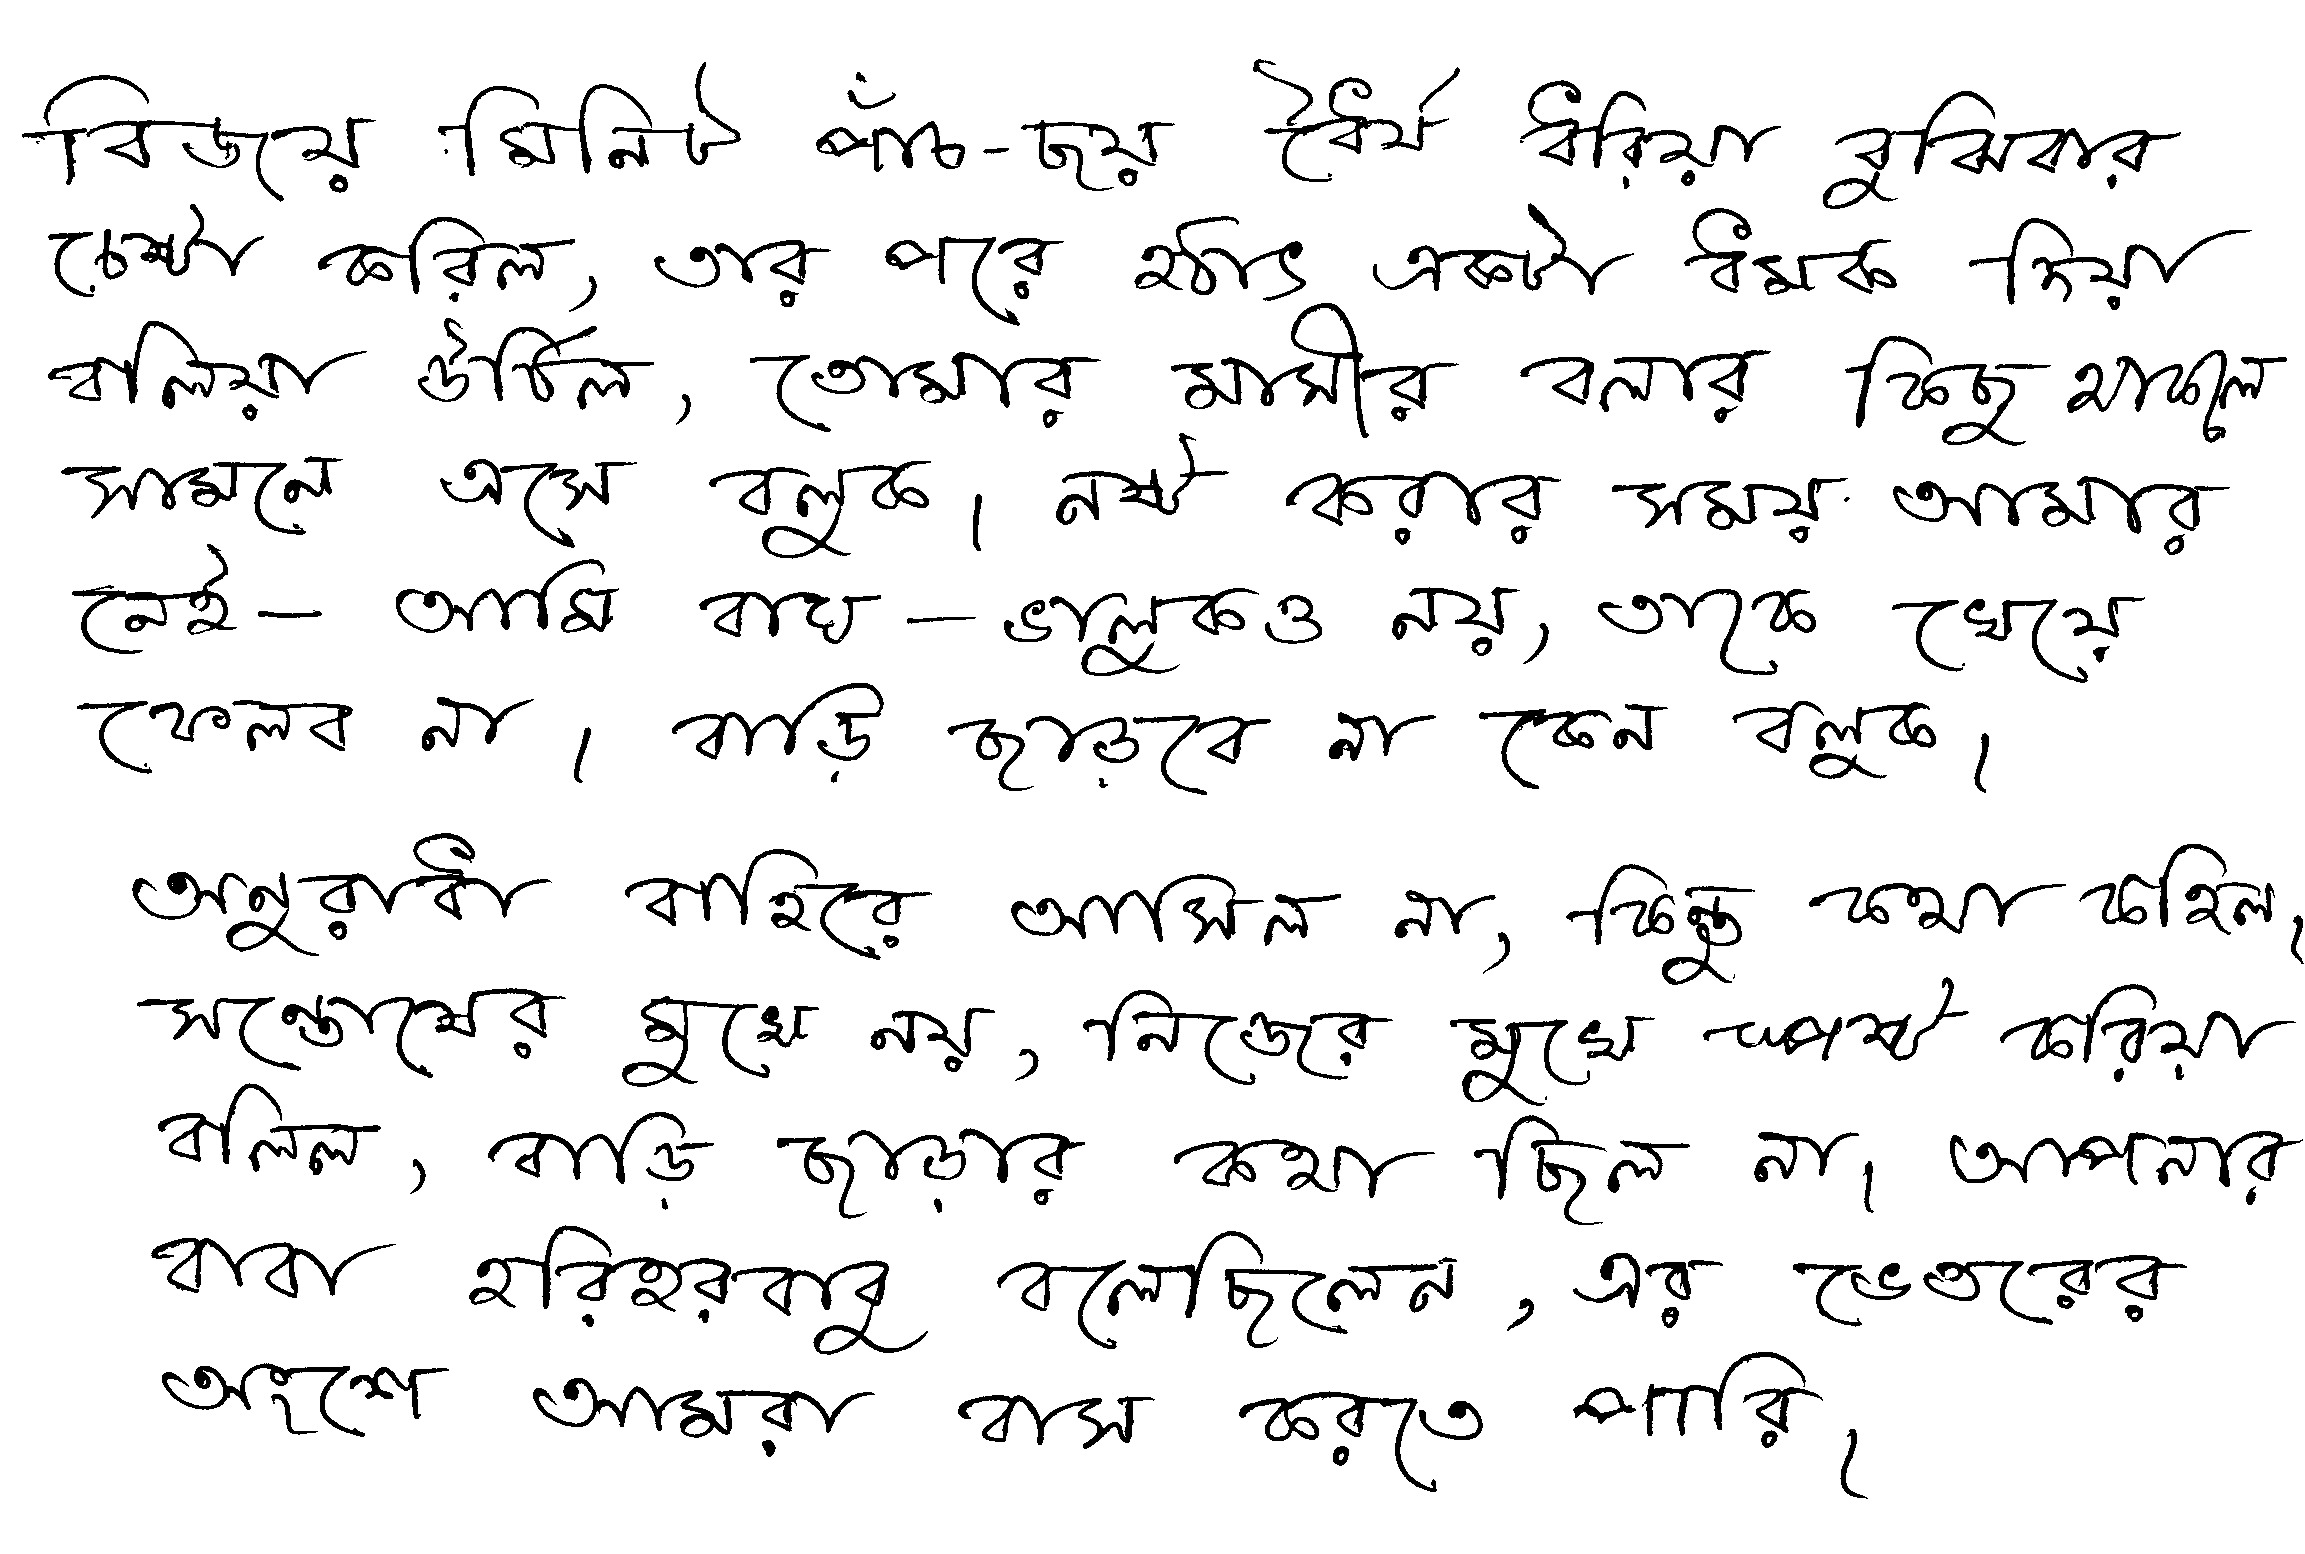 বিজয় মিনিট পাঁচ-ছয় ধৈর্য ধরিয়া বুঝিবার
চেষ্টা করিল, তার পরে হঠাৎ একটা ধমক দিয়া
বলিয়া উঠিল, তোমার মাসীর বলার কিছু থাকে ত
সামনে এসে বলুক। নষ্ট করার সময় আমার
নেই— আমি বাঘ—ভালুকও নয়, তাকে খেয়ে
ফেলব না। বাড়ি ছাড়বে না কেন বলুক।
অনুরাধা বাহিরে আসিল না, কিন্তু কথা কহিল।
সন্তোষের মুখে নয়, নিজের মুখে স্পষ্ট করিয়া
বলিল, বাড়ি ছাড়ার কথা ছিল না। আপনার
বাবা হরিহরবাবু বলেছিলেন, এর ভেতরের
অংশে আমরা বাস করতে পারি।